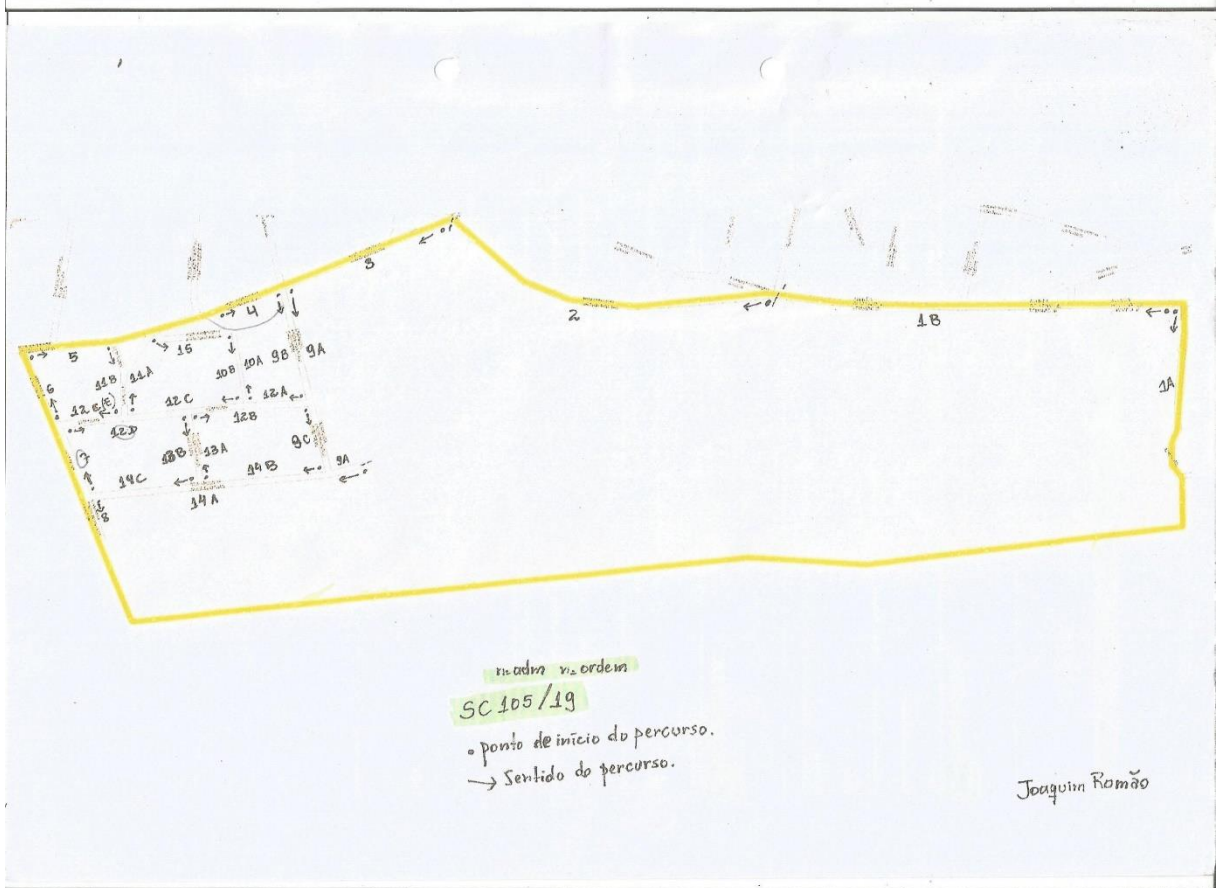 3
4
2
1B
5
15
1A
6
11B
11A
10B
10A
9B
9A
12E(E)
12C
12A
12D
12B
7
13B
13A
9C
14C
14B
9A
8
14A
nº adm nº ordem
SC 105/19
• ponto de início do percurso.
→ Sentido do percurso.
Joaquim Romão